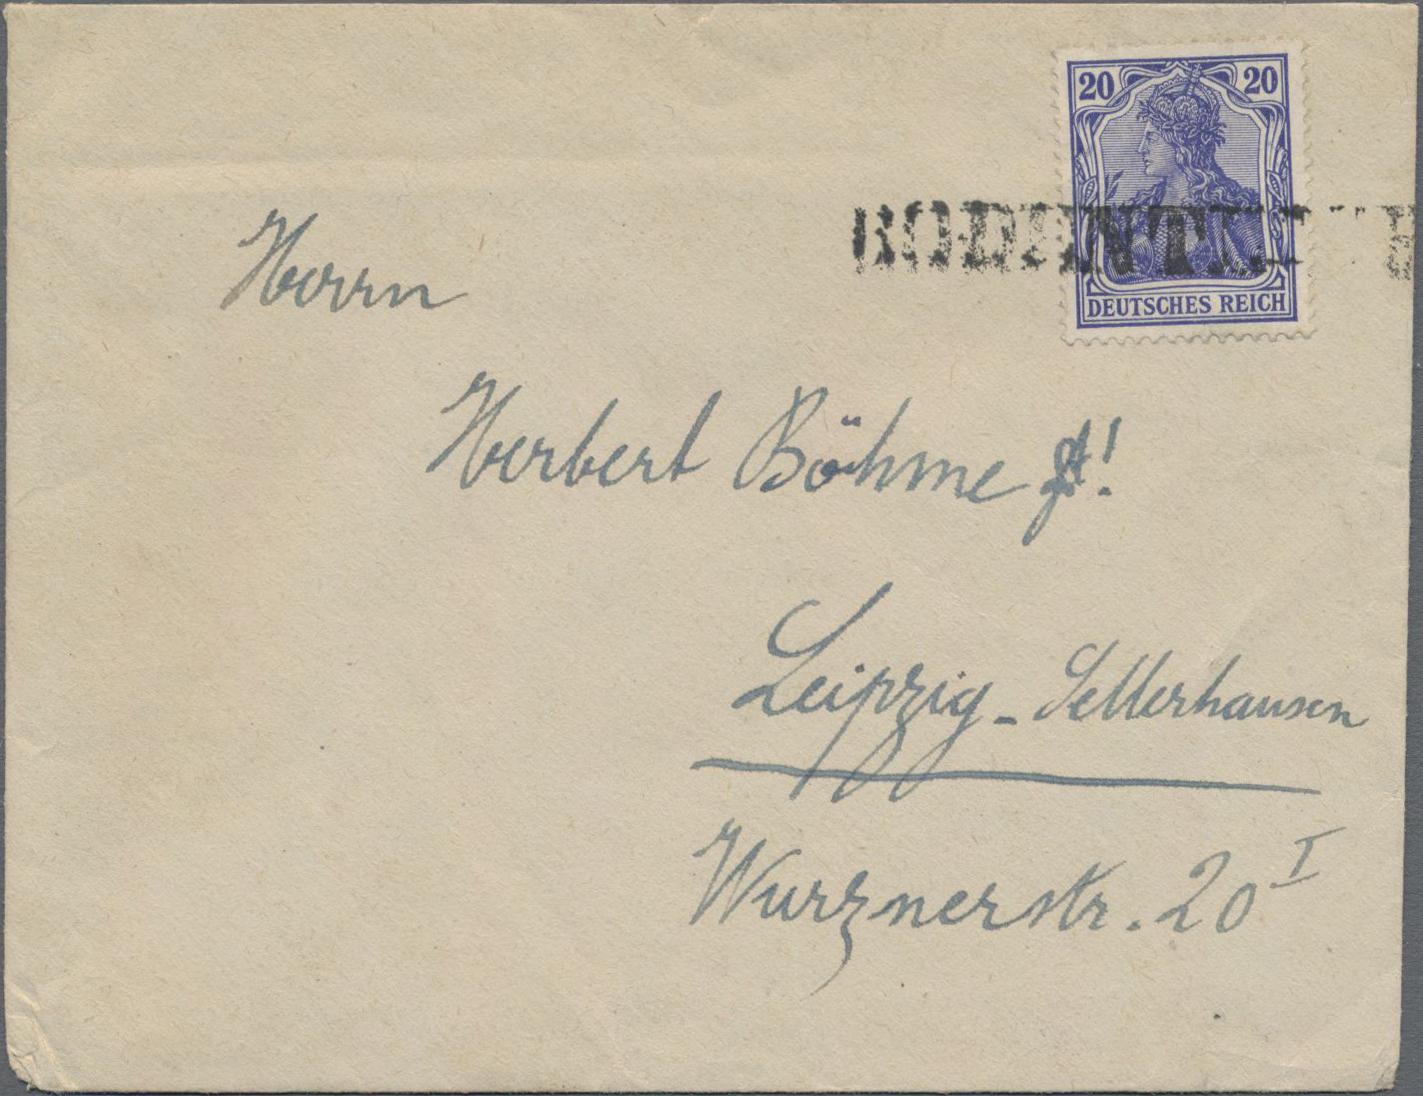 20 20
DEUTSCHES REICH
Herrn
Herbert Böhme
Leipzig - Sellerhausen
Wurznerstr. 20 I